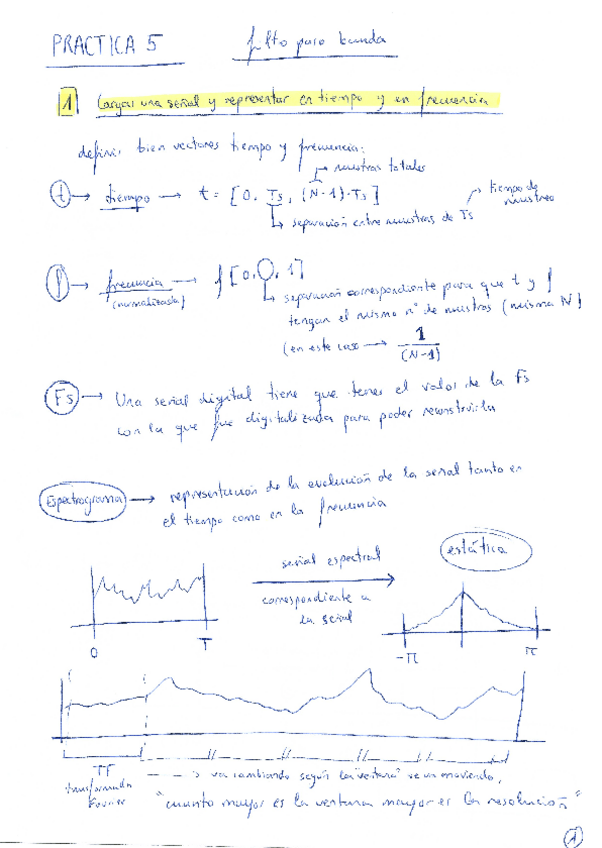 PRACTICA 5
filtro paso banda
1 Cargar una señal y representar en tiempo y en frecuencia
definir bien vectores tiempo y frecuencia:
→ muestras totales
t → tiempo → t = [0, Ts, (N-1)·Ts]
→ tiempo de muestreo
↳ separación entre muestras de Ts
f → frecuencia → f [0, , 1]
(normalizada)
↳ separación correspondiente para que t y f
tengan el mismo nº de muestras (misma N)
(en este caso → 1/(N-1)
Fs → Una señal digital tiene que tener el valor de la Fs
con la que fue digitalizada para poder reconstruirla
Espectrograma → representación de la evolución de la señal tanto en
el tiempo como en la frecuencia
estática
señal espectral
correspondiente a
la señal
0 T
-π π
TF
transformada
Fourier
va cambiando según la "ventana" se va moviendo,
"cuanto mayor es la ventana mayor es la resolución"
1